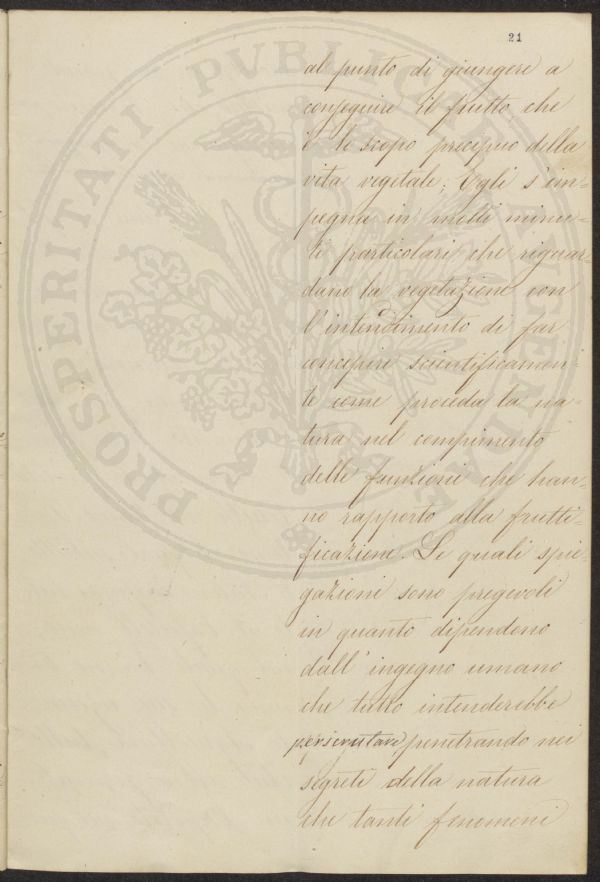 21
al punto di giungere a
conseguire il frutto, che
è lo scopo precipuo della
vita vegetale; Egli s'im-
pegna in molti minu-
ti particolari che riguar-
dano la vegetazione con
l'intendimento di far
concepire scientificamen-
te come proceda la na-
tura nel compimento
delle funzioni che han-
no rapporto alla frutti-
ficazione. Le quali spie-
gazioni sono pregevoli
in quanto dipendono
dall'ingegno umano
che tutto intenderebbe
perscrutare, penetrando nei
segreti della natura
che tanti fenomeni
PROSPERITATI PVBLICAE AVGENDAE